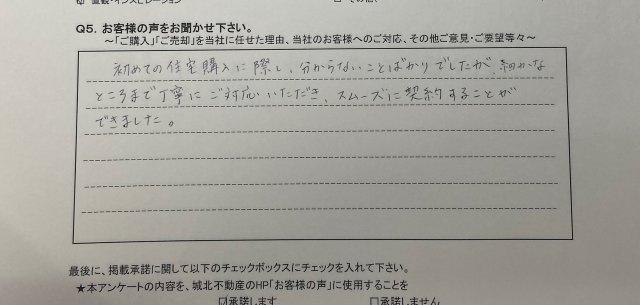 Q5. お客様の声をお聞かせ下さい。
～「ご購入」「ご売却」を当社に任せた理由、当社のお客様へのご対応、その他ご意見・ご要望等々～
初めての住宅購入に際し、分からないことばかりでしたが、細かな
ところまで丁寧にご対応いただき、スムーズに契約することが
できました。
最後に、掲載承諾に関して以下のチェックボックスにチェックを入れて下さい。
★本アンケートの内容を、城北不動産のHP「お客様の声」に使用することを
☑承諾します □承諾しません